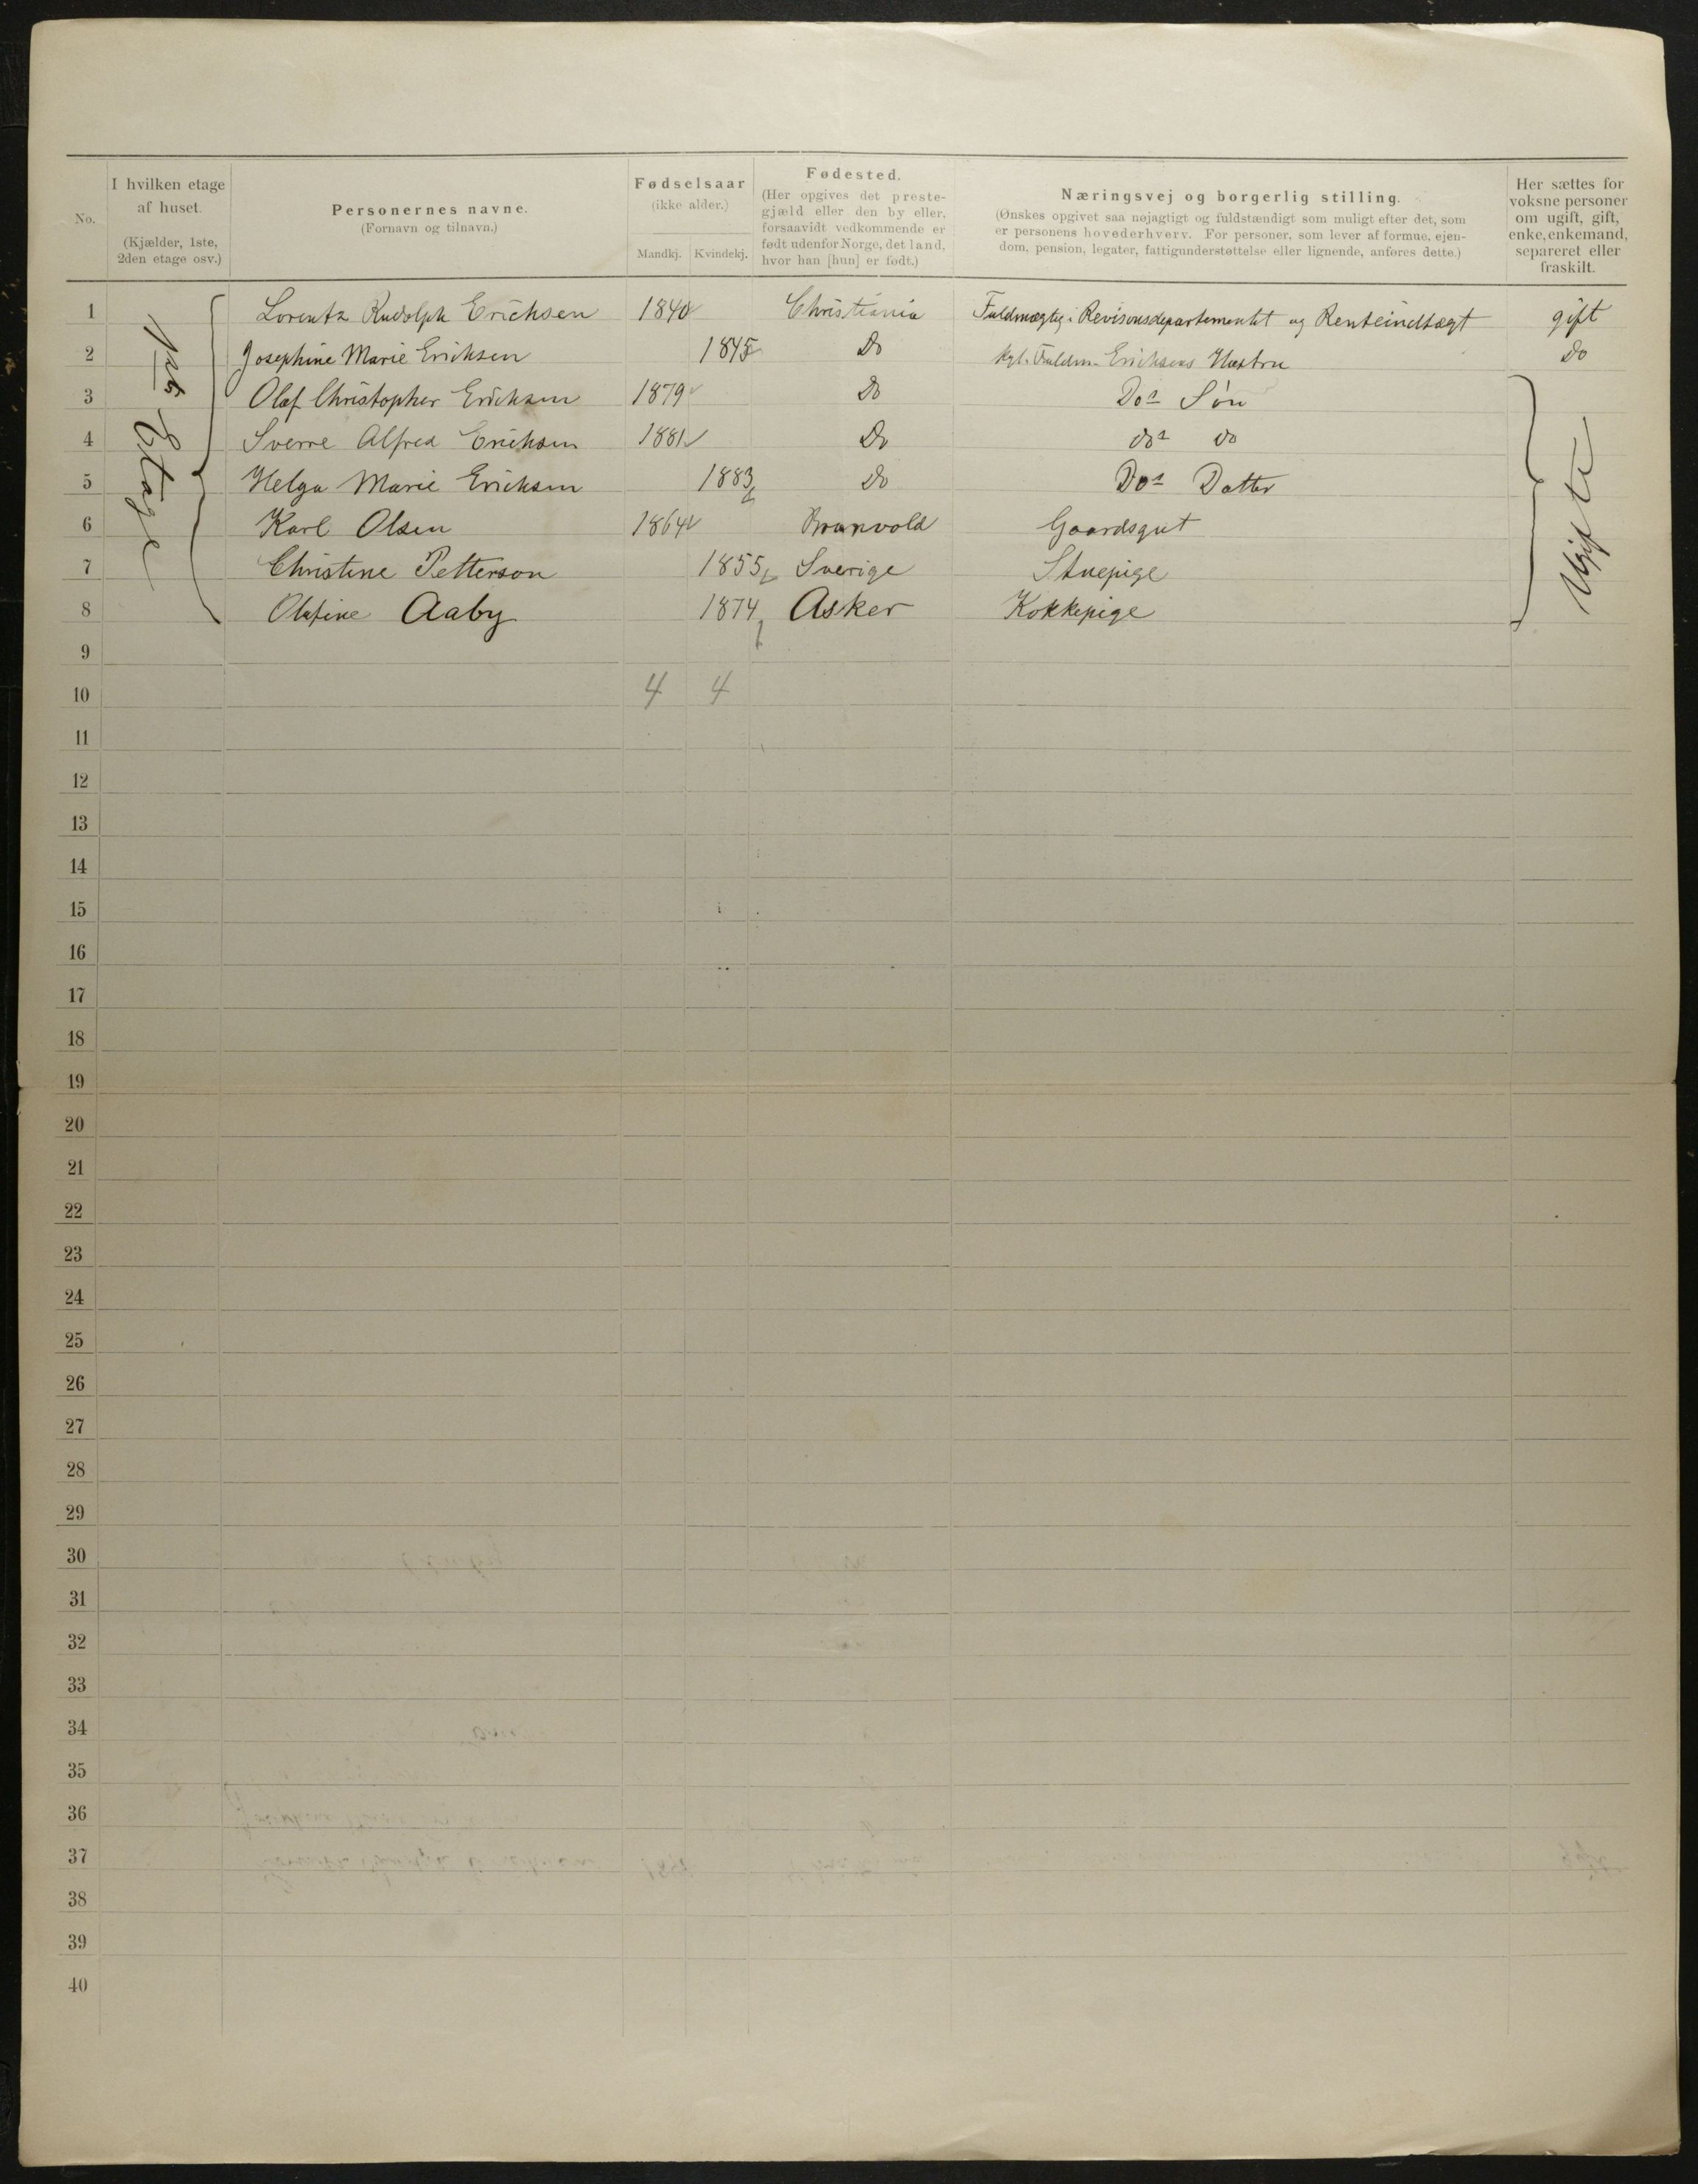 No.
I hvilken etage af huset. (Kjælder, 1ste, 2den etage osv.)
Personernes navne. (Fornavn og tilnavn.)
Fødselsaar (ikke alder.) Mandkj. Kvindekj.
Fødested. (Her opgives det prestegjæld eller den by eller, forsaavidt vedkommende er født udenfor Norge, det land, hvor han [hun] er født.)
Næringsvej og borgerlig stilling. (Ønskes opgivet saa nøjagtigt og fuldstændigt som muligt efter det, som er personens hovederhverv. For personer, som lever af formue, ejendom, pension, legater, fattigunderstøttelse eller lignende, anføres dette.)
Her sættes for voksne personer om ugift, gift, enke, enkemand, separeret eller fraskilt.
1ste Etage
1 Lorentz Rudolph Erichsen 1840 Christiania Fuldmægtig i Revisonsdepartementet og Renteindtægt gift
2 Josephine Marie Erichsen 1845 Do Kgl. Fuldm. Erichsens Hustru Do
3 Olaf Christopher Erichsen 1879 Do Dos Søn
4 Sverre Alfred Erichsen 1881 Do dos do
5 Helga Marie Erichsen 1883 Do Dos Datter
6 Karl Olsen 1864 Branvold Gaardsgut
7 Christine Petterson 1855 Sverige Stuepige
8 Olafine Aaby 1874 Asker Kokkepige
Ugifte
9
10 4 4
11
12
13
14
15
16
17
18
19
20
21
22
23
24
25
26
27
28
29
30
31
32
33
34
35
36
37
38
39
40